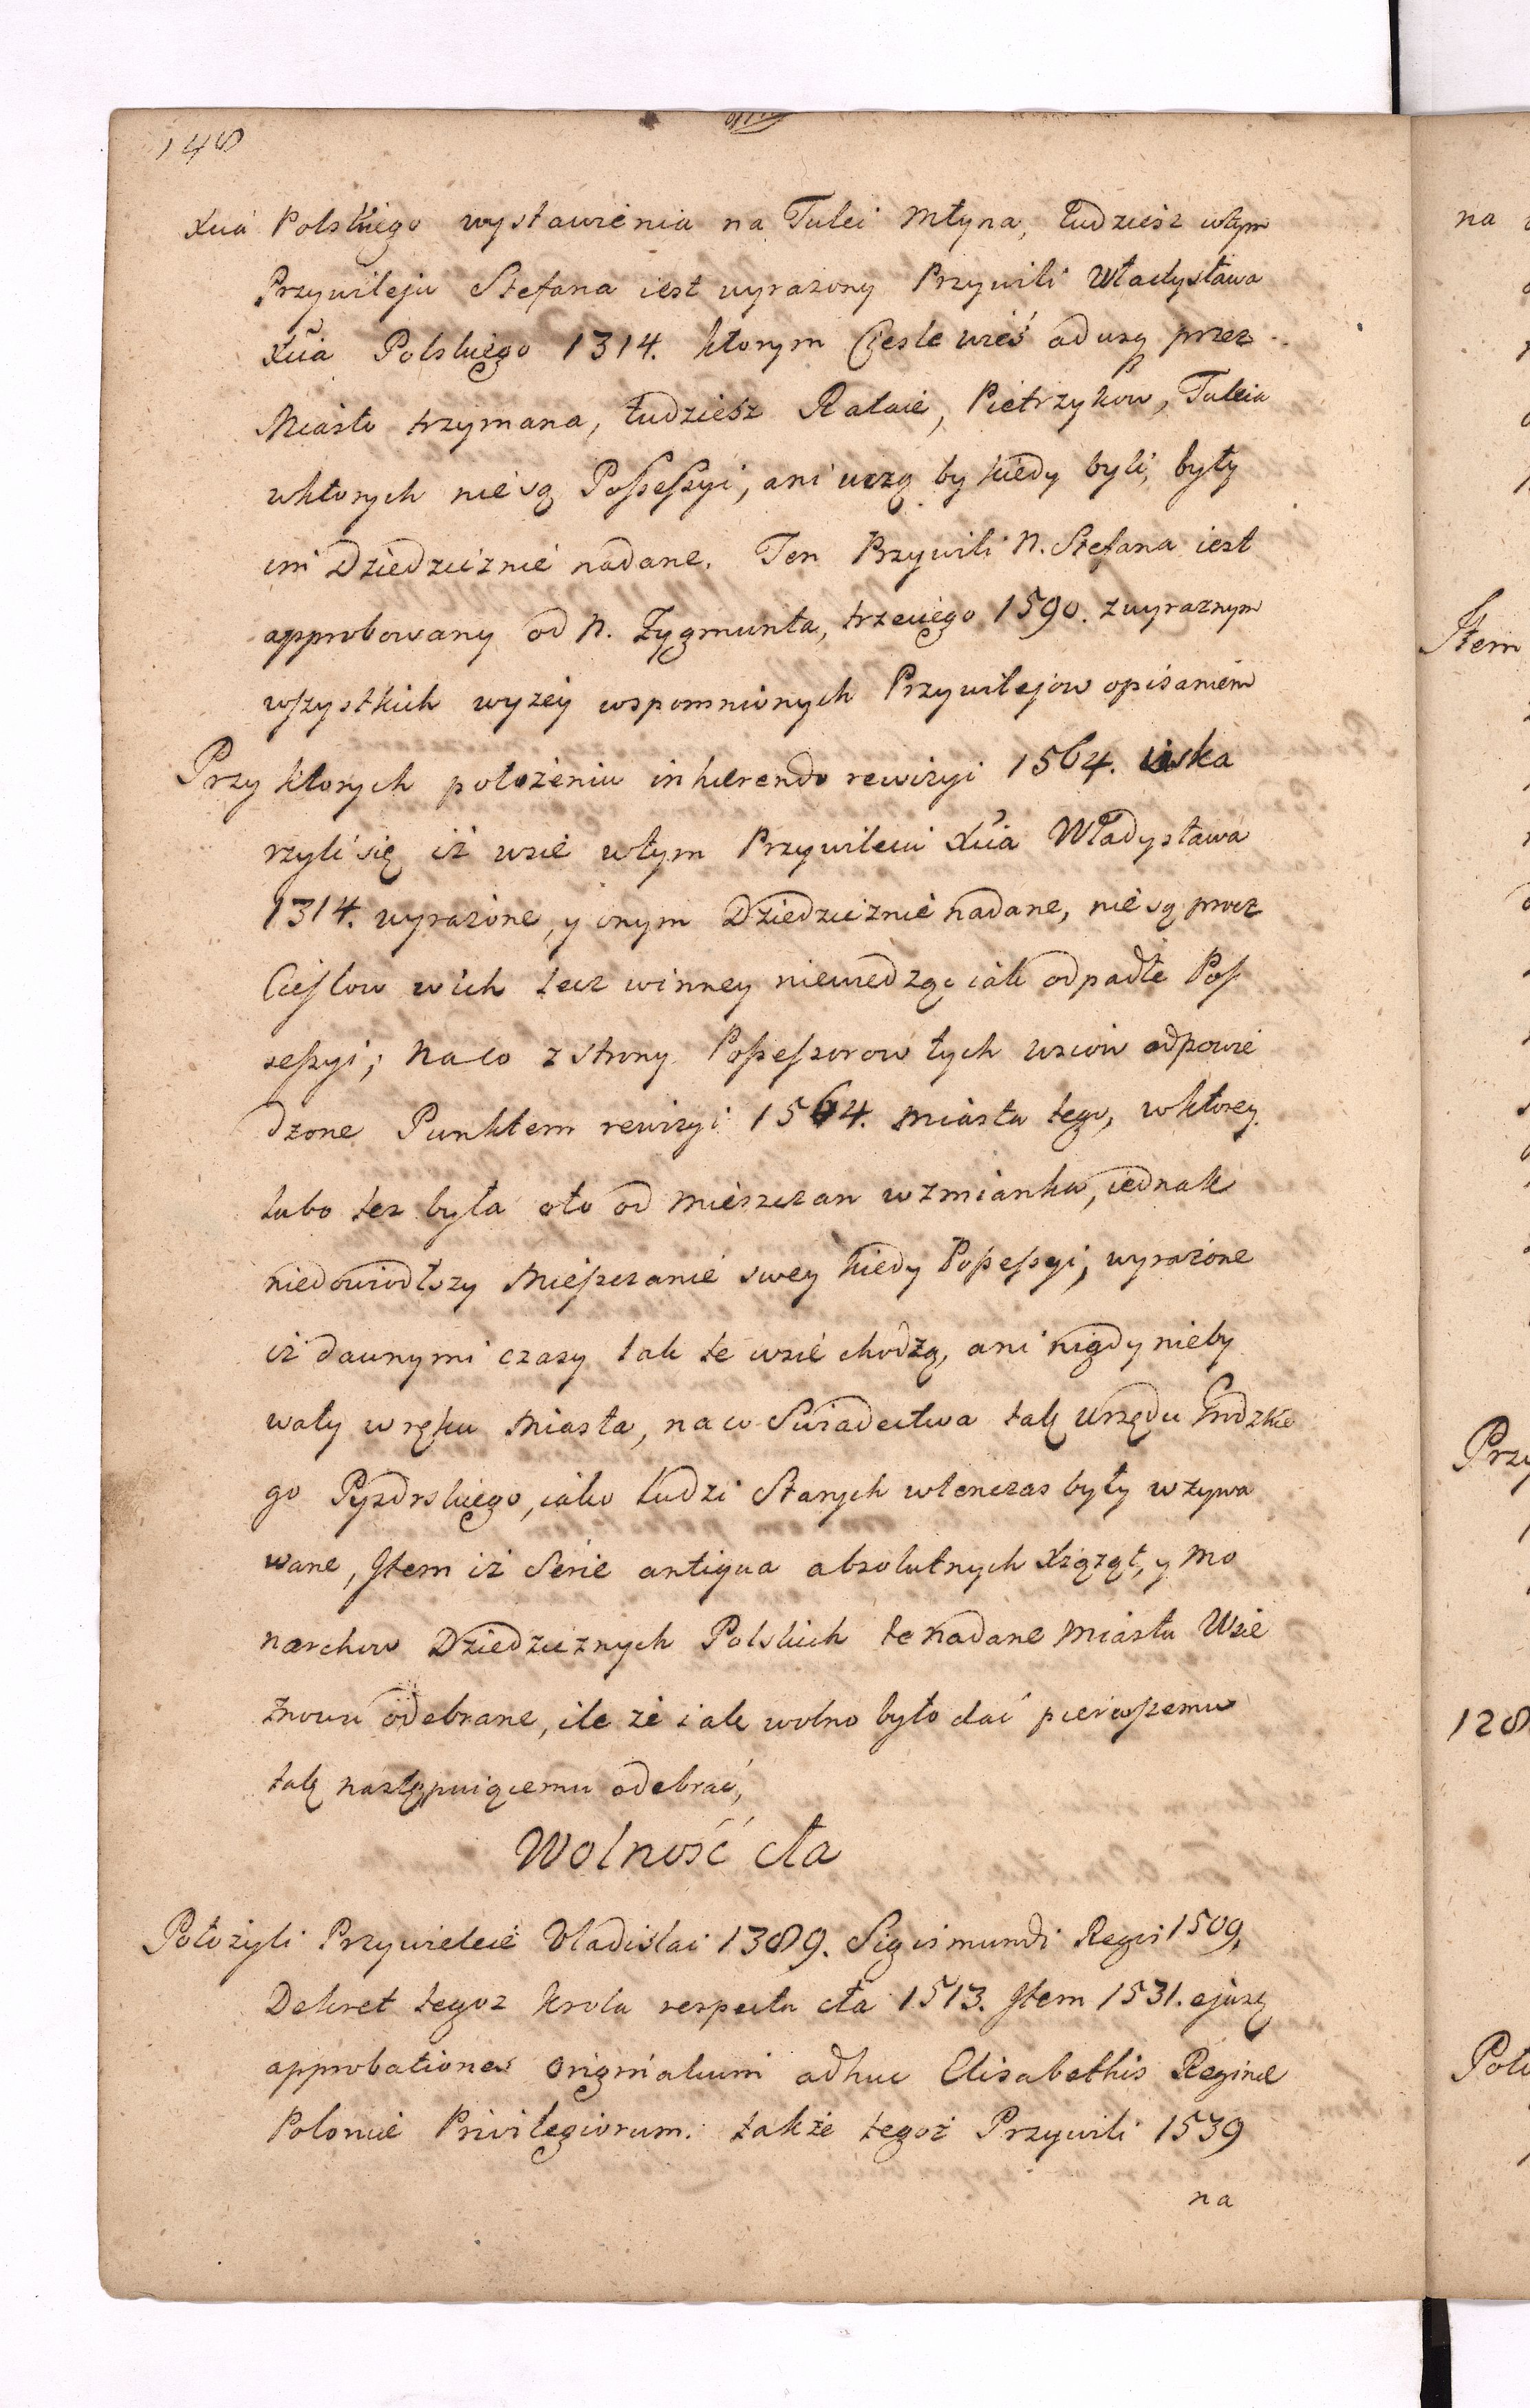 148
Xcia Polskiego wystawienia na Tulei Młyna, tudziesz wtym
Przywileju Stefana iest wyrazony Przywili Władysława
Xcia Polskiego 1314. ktorym Ciesle wieś od nsz przez
Miasto trzymana, tudziesz Rataie, Pietrzykow, Tulcia
wktorych nie są Possessyi, ani uczą by kiedy byli, były
im Dziedzicznie nadane. Ten Przywili N. Stefana iest
approbowany od N. Zygmunta, trzeciego 1590. zwyraznym
wszystkich wyzey wspomnionych Przywilejow opisaniem
Przy ktorych połozeniu inherendo rewizyi 1564. uska
rzyli się iz wsie wtym Przywileiu Xcia Władysława
1314. wyrazone, y onym Dziedzicznie nadane, nie są procz
Cieslow w ich lecz winney niewiedzą iak odpadłe Pos
sessyi; Na co z strony Possessorow tych wsiow odpowie
dzone Punktem rewizyi 1564. Miasta tego, wktorey
lubo tez była oto od Mieszczan wzmianka, iednak
niedowiodłszy Mieszczanie swey kiedy Possessyi, wyrazone
iz dawnymi czasy tak te wsie chodzą, ani nigdy nieby
wały w ręku Miasta, na co Swiadectwa tak Urzędu Grodzkie
go Pyzdrskiego, iako Ludzi Starych wtenczas były wzywa
wane, Item iz Serie antiqua absolutnych Xsiąząt, y Mo
narchow Dziedzicznych Polskich te nadane Miastu Wsie
znowu odebrane, ile ze iak wolno było dać pierwszemu
tak następuiącemu odebrać,
Wolność cła
Połozyli Przywieleie Vladislai 1389. Sigismundi Regis 1509,
Dekret tegoz Krola respectu cła 1513. Item 1531. ejusq
approbationes originalium adhuc Elisabethis Regine
Polonie Privilegiorum. także tegoż Przywili 1539
na
na
Item
Przy
128
Poło